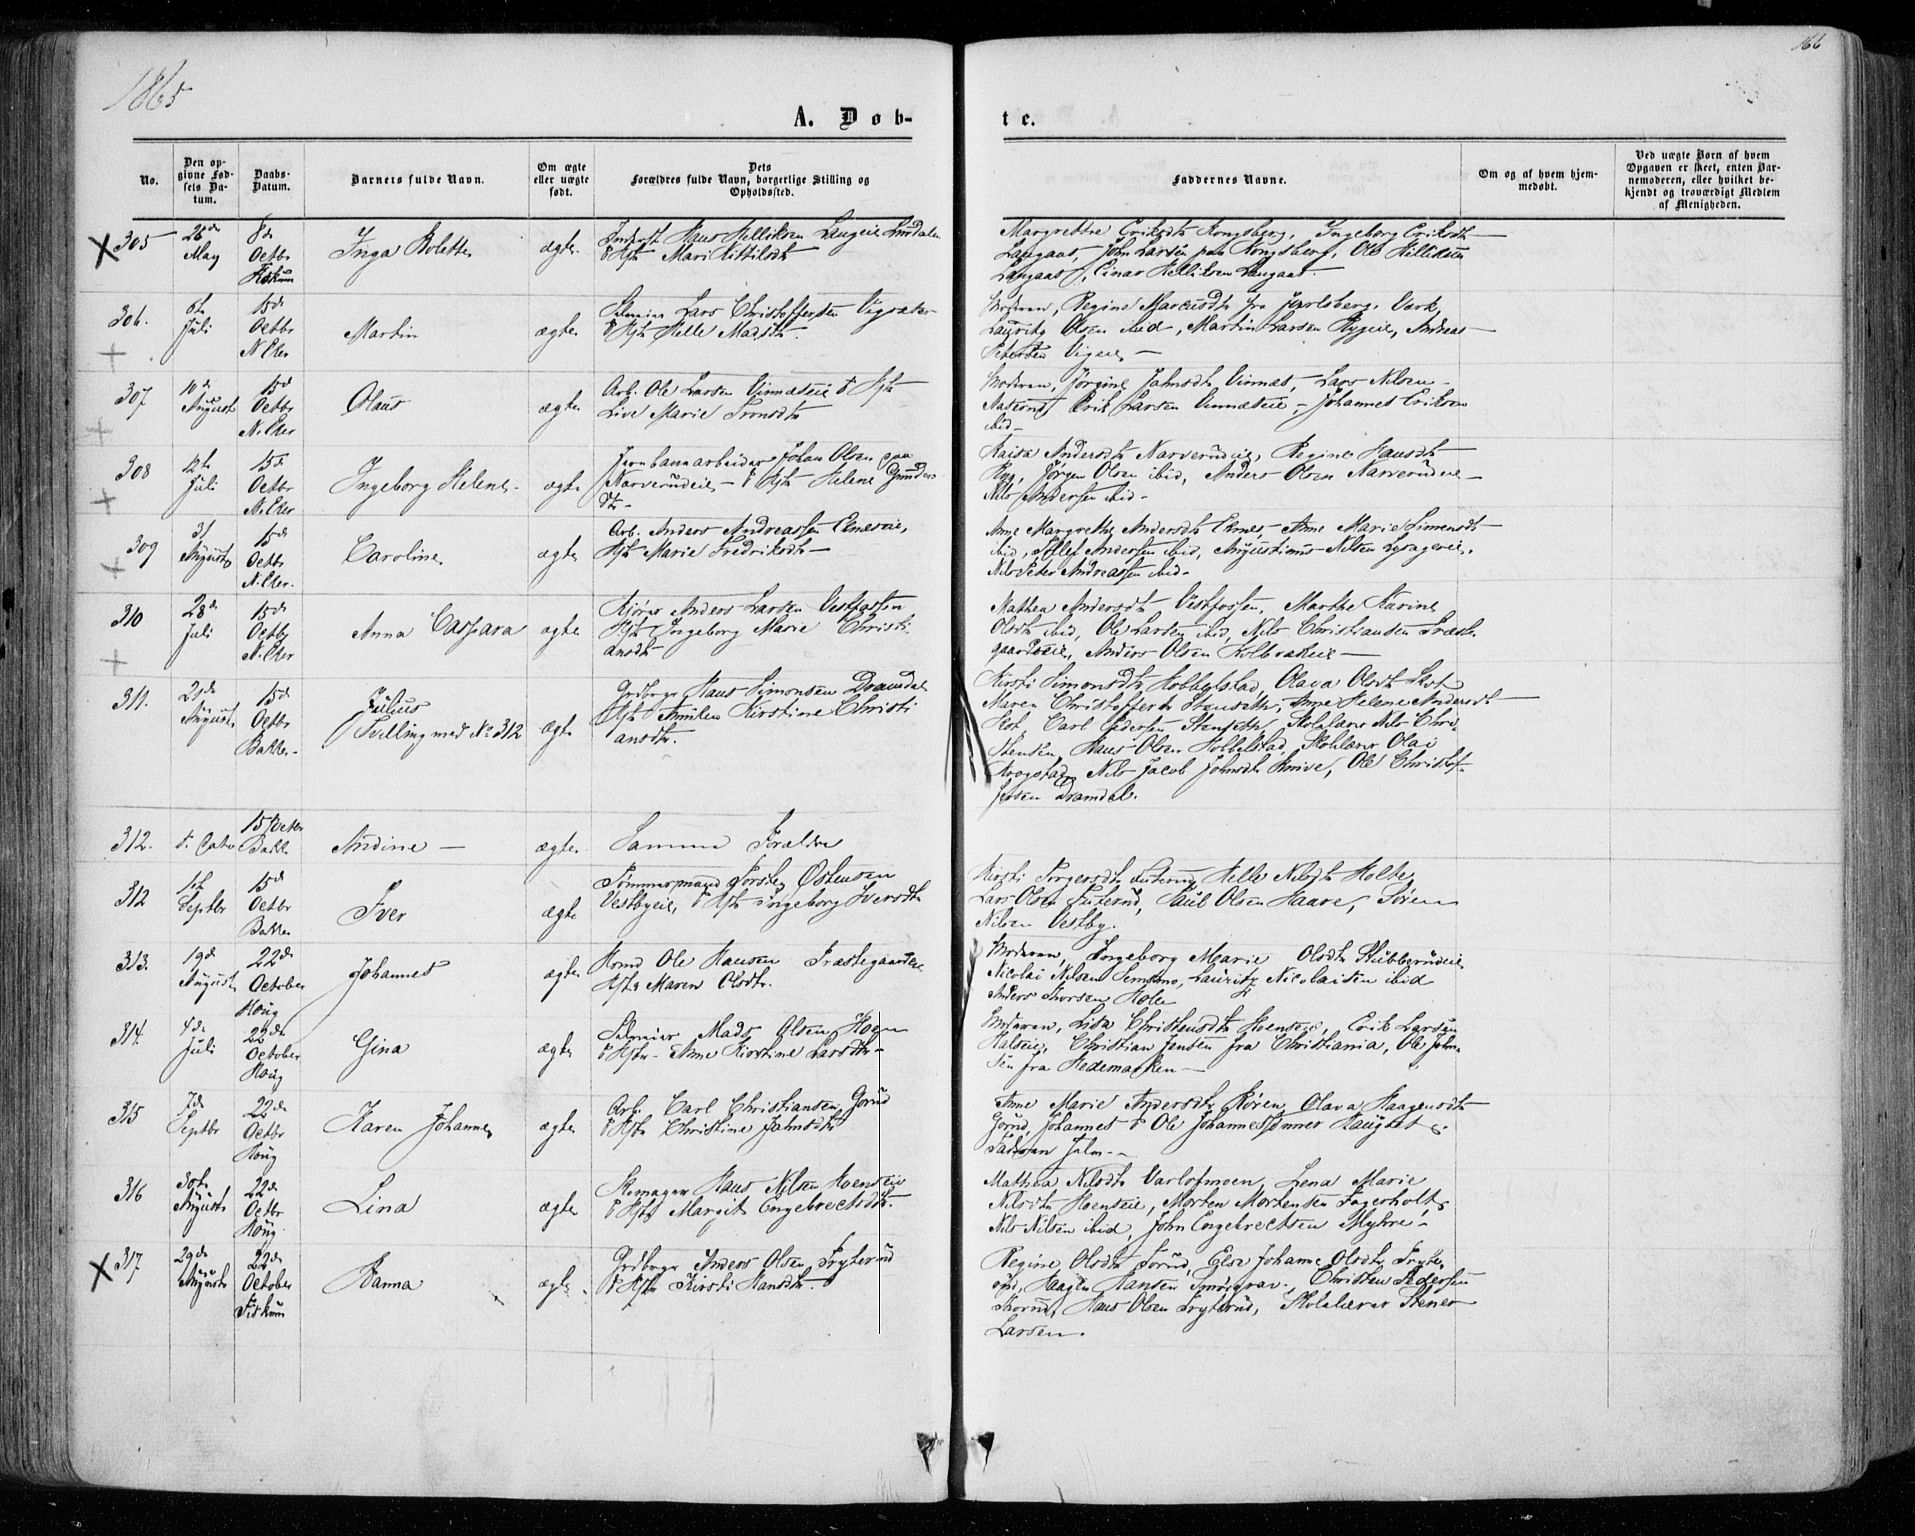 1865
166
A. Døb-
te.
No.
Den op-
givne Fød-
sels Da-
tum.
Daabs-
Datum.
Barnets fulde Navn.
Om ægte
eller uægte
født.
Dets
Forældres fulde Navn, borgerlige Stilling og
Opholdssted.
Faddernes Navne.
Om og af hvem hjem-
medøbt.
Ved uægte Børn af hvem
Opgaven er skeet, enten Bar-
nemoderen, eller hvilket be-
kjendt og troværdigt Medlem
af Menigheden.
305
26de
May
8de
Octbr
Fiskum
Inga Bolette
ægte
Hans Helliksen
& Hst Mari Kittilsdtr
Margrethe Eriksdtr Kongsberg, Ingeborg Eriksdtr
Langaas, John Larsen paa Kongsberg, Ole Helliksen
Langaas, Einar Helliksen Langaas
306.
6te
Juli
15de
Octbr
N. Eker
Martin
ægte
Lars Christoffersen
& Hst Helle Madsdtr.
Moderen, Regine Marcusdtr fra Jarlsberg Værk,
Lauritz Olsen ibid, Martin Larsen Ryggeie, Andreas
Petersen
307
10de
August
15de
Octbr
N. Eker
Olaus
ægte
Arb. Ole Larsen Vinnæseie & Hst
Live Marie Tronsdtr
Moderen, Jørgine Jahnsdtr Vinnæs, Lars Nilsen
Erik Larsen Vinnæseie, Johannes Eriksen
ibid
308
12te
Juli
15de
Octbr
N. Eker
Ingeborg Helene
ægte
Jernbanearbeider Johan Olsen paa
Narverudeie & Hst Helene Gunders-
dtr
Raisa Andersdtr Narverudeie, Regine Hansdtr
Ryg, Jørgen Olsen ibid, Anders Olsen Narverudeie
Nils Andersen ibid
309
31
August
15de
Octbr
N. Eker.
Caroline
ægte
Arb. Anders Andreassen Erneseie,
Hst Marie Fredriksdtr
Anne Margrethe Andersdtr Ernes, Anne Marie Simensdtr
ibid, Andersen ibid, Augustinus Nilsen
Nils Peter Andreassen ibid
310
28de
Juli
15de
Octbr
N. Eker
Anna Caspara
ægte
Kjører Anders Larsen Vestfossen
Hst Ingeborg Marie Christi-
ansdtr
Mathea Andersdtr Vestfossen, Marthe Karine
Olsdtr ibid, Ole Larsen ibid, Nils Christiansen Præste-
gaardseie, Anders Olsen
311.
August
15de
Octbr
Bakke
Julius
Tvilling med No 312
ægte
Grdbrgr Hans Simonsen Dramdal
Hst Emilie Kirstine Christi
ansdtr.
Kirsti Simonsdtr Hobbelstad, Olava Olsdtr
Maren Christoffersdtr Stenseth, Anne Helene Andersdtr
Carl Pedersen Stenseth, Skolelærer Nils Chri-
stensen, Hans Olsen Hobbelstad, Skolelærer Olai
Nils Jacob Johnsdtr Ole Christof-
fersen Dramdal.
312.
15 Octbr
Bakke
Andine
ægte
Samme Forældre
312
1ste
Septbr
15de
Octbr
Bakke
Iver
ægte
Tømmermand Torsten Østensen
Vestbyeie, & Hst Ingeborg Iversdtr
Kirsti Helle Nilsdtr Holte
Lars Olsen Paul Olsen Haare, Søren
Nilsen Vestby.
313.
19de
August
22de
October
Houg
Johannes
ægte
Hmd Ole Hansen Præstegaardseie
Hst Maren Olsdtr.
Moderen, Ingeborg Marie Olsdtr Stubberudeie
Nicolai Nilsen Semsmo, Lauritz Nicolaisen ibid
Anders Thorsen Holen
314.
4de
Juli
22de
October
Houg
Gina
ægte
Mads Olsen Hoen
& Hst Anne Kirstine Larsdtr
Moderen, Lisa Christensdtr Hoenseie, Erik Larsen
Halseie, Christian Jensen fra Christiania, Ole John-
sen fra Hedemarken
315
7de
Septbr
22de
Octbr
Houg
Karen Johanne
ægte
Arb. Carl Christiansen Gorud
& Hst Christine Jahnsdtr
Anne Marie Andersdtr Røren, Olava Haagensdtr
Gorud, Johannes & Ole Johannessønner
Faderen
316
30te
August
22de
Octbr
Houg
Lina
ægte
Skomager Hans Nilsen Hoenseie
& Hst Margit Engebretsdtr.
Mathea Nilsdtr Varlofmoen, Lena Marie
Nilsdtr Hoenseie, Morten Mortensen Fagerholt,
Nils Nilsen ibid, John Engebrechtsen Myhre
317
29de
August
22de
October
Fiskum
Hanna
ægte
Grdbrgr Anders Olsen Fryterud
& Hst Kirsti Hansdtr.
Regine Olsdtr Else Johanne Olsdtr Fryte-
rud, Haagen Hansen Smørgrav, Christen Pedersen
Thorud, Hans Olsen Fryterud, Skolelærer Stener
Larsen.